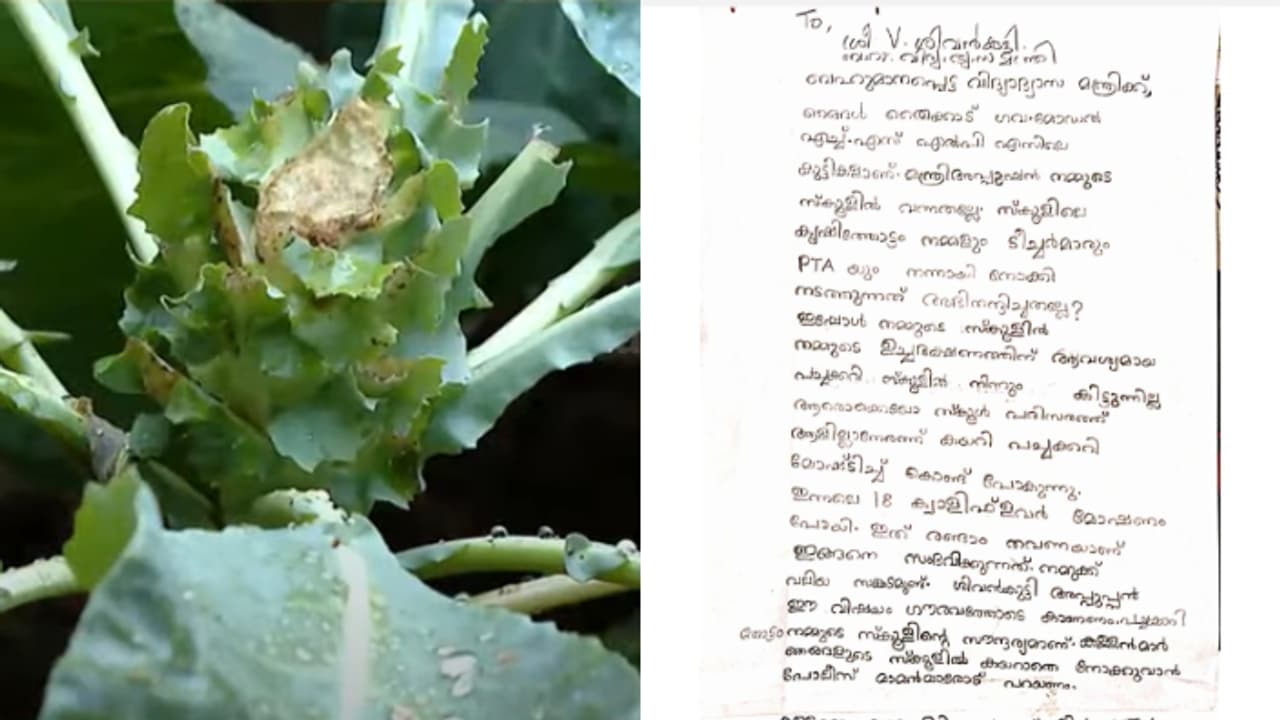 To,
ശ്രീ V. ശിവൻകുട്ടി.
ബഹു. വിദ്യാഭ്യാസ മന്ത്രി
ബഹുമാനപ്പെട്ട വിദ്യാഭ്യാസ മന്ത്രിക്ക്,
ഞങ്ങൾ തൈക്കാട് ഗവ.മോഡൽ
എച്ച്.എസ് എൽപി എസിലെ
കുട്ടികളാണ്. മന്ത്രിഅപ്പൂപ്പൻ നമ്മുടെ
സ്കൂളിൽ വന്നതല്ലേ. സ്കൂളിലെ
കൃഷിത്തോട്ടം നമ്മളും ടീച്ചർമാരും
PTA യും നന്നായി നോക്കി
നടത്തുന്നത് അഭിനന്ദിച്ചതല്ലേ?
ഇപ്പോൾ നമ്മുടെ സ്കൂളിൽ
നമ്മുടെ ഉച്ചഭക്ഷണത്തിന് ആവശ്യമായ
പച്ചക്കറി സ്കൂളിൽ നിന്നും കിട്ടുന്നില്ല
ആരൊക്കെയോ സ്കൂൾ പരിസരത്ത്
ആളില്ലാനേരത്ത് കയറി പച്ചക്കറി
മോഷ്ടിച്ച് കൊണ്ട് പോകുന്നു.
ഇന്നലെ 18 ക്വാളിഫ്ളവർ മോഷണം
പോയി. ഇത് രണ്ടാം തവണയാണ്
ഇങ്ങനെ സംഭവിക്കുന്നത്. നമുക്ക്
വലിയ സങ്കടമുണ്ട്. ശിവൻകുട്ടി അപ്പൂപ്പൻ
ഈ വിഷയം ഗൗരവത്തോടെ കാണണം.പച്ചക്കറി
തോട്ടം നമ്മുടെ സ്കൂളിന്റെ സൗന്ദര്യമാണ്. കള്ളൻമാർ
ഞങ്ങളുടെ സ്കൂളിൽ കയറാതെ നോക്കുവാൻ
പോലീസ് മാമൻമാരോട് പറയണം.